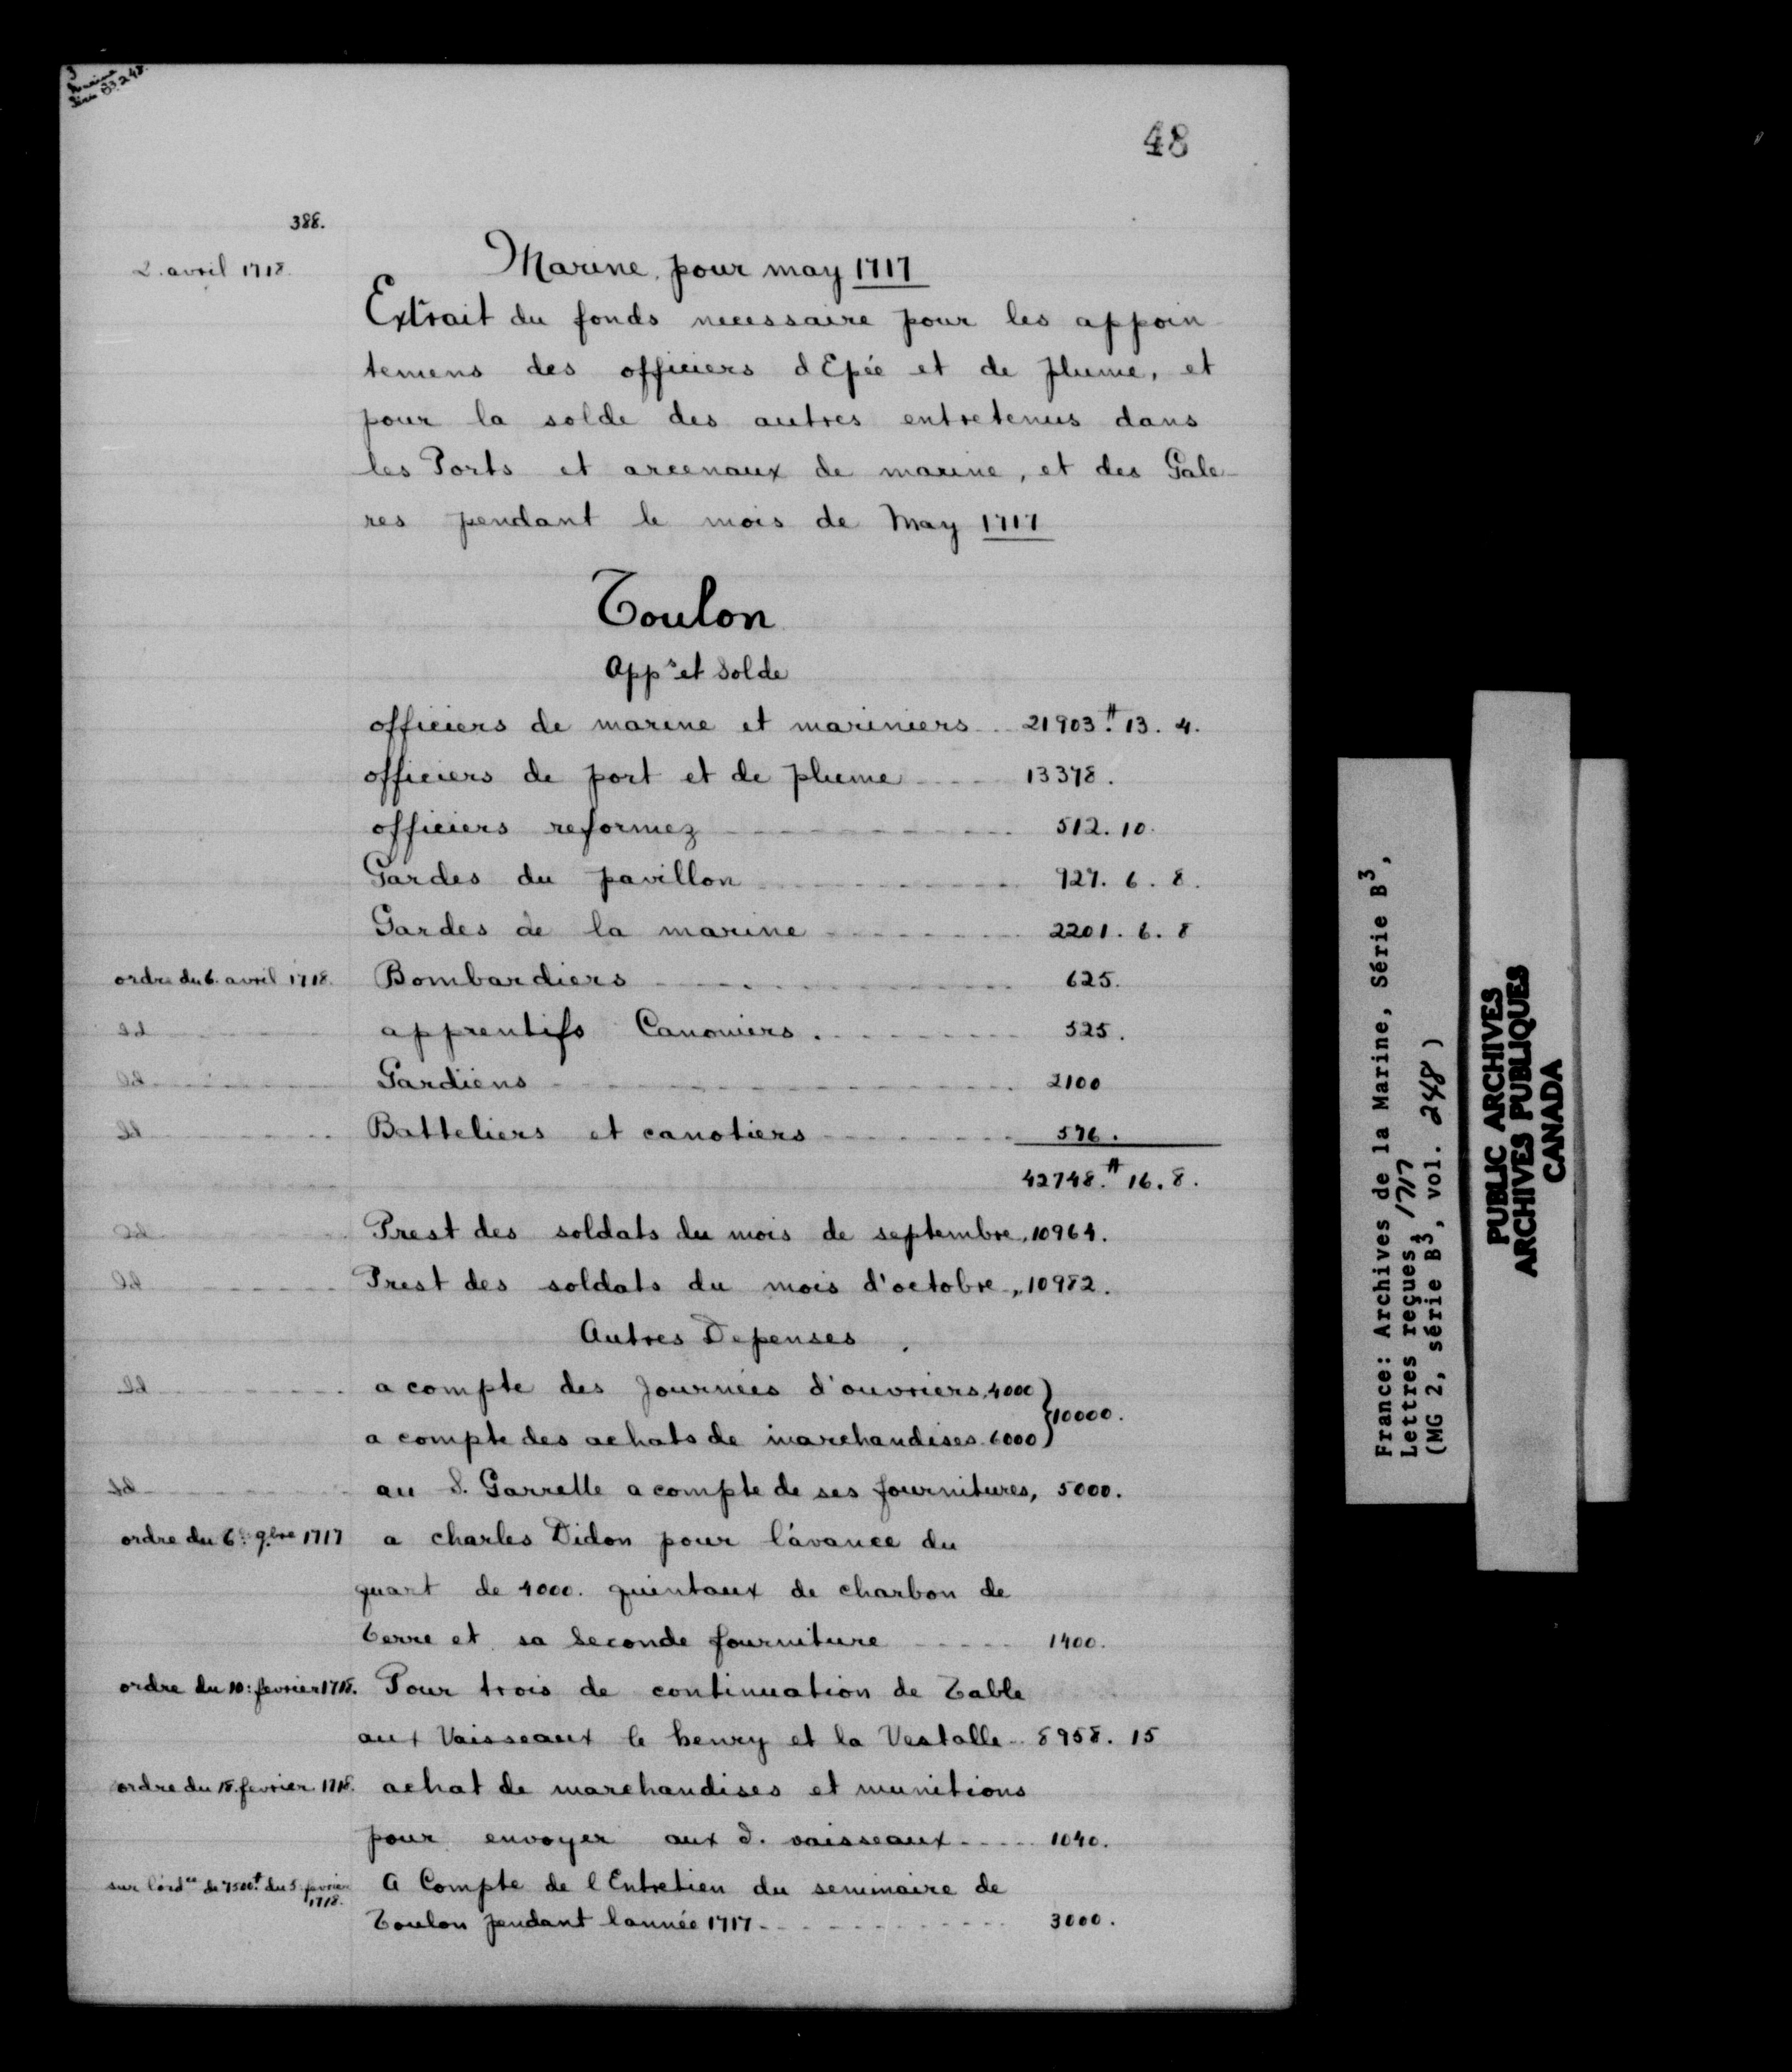 3
Marine
Série B3 248.
48
388.
2. avril 1718.
Marine. pour may 1717
Extrait du fonds necessaire pour les appoin
temens des officiers d Epée et de plume, et
pour la solde des autres entretenus dans
les Ports et arcenaux de marine, et des Gale-
res pendant le mois de May 1717
Toulon
Apps et Solde
officiers de marine et mariniers 21903.# 13. 4.
officiers de port et de plume 13378.
officiers reformez 512. 10.
Gardes du pavillon 927. 6. 8.
Gardes de la marine 2201. 6. 8
ordre du 6. avril 1718. Bombardiers 625.
id apprentifs Canoniers. 525.
id Gardiens 2100
id Batteliers et canotiers 576.
42748.# 16. 8.
id Prest des soldats du mois de septembre, 10964.
id Prest des soldats du mois d'octobre, 10982.
Autres Depenses.
id a compte des Journées d'ouvriers, 4000 } 10000.
a compte des achats de marchandises. 6000
id au S. Garrelle a compte de ses fournitures, 5000.
ordre du 6: 9.bre 1717 a charles Didon pour l'avance du
quart de 4000. quintaux de charbon de
terre et sa seconde fourniture 1400.
ordre du 10: fevrier 1718. Pour trois de continuation de Table
aux Vaisseaux le henry et la Vestalle 8958. 15
ordre du 18. fevrier 1718. achat de marchandises et munitions
pour envoyer aux d. vaisseaux 1040.
sur l'ordce de 7500# du 5 fevrier 1718. A Compte de l Entretien du seminaire de
Toulon pendant lannée 1717 3000.
France: Archives de la Marine, Série B3,
Lettres reçues, 1717
(MG 2, série B3, vol. 248)
PUBLIC ARCHIVES
ARCHIVES PUBLIQUES
CANADA